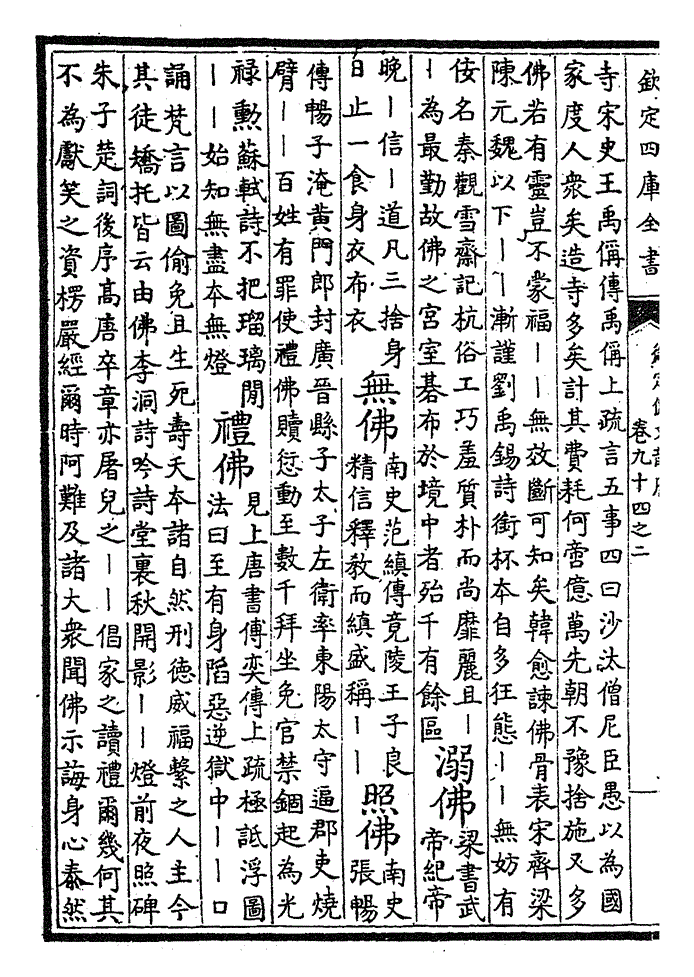 欽定四庫全書
卷九十四之二
寺宋史王禹偁傳禹偁上疏言五事四曰沙汰僧尼臣愚以為國
家度人衆矣造寺多矣計其費耗何啻億萬先朝不豫捨施又多
佛若有靈豈不蒙福丨丨無效斷可知矣韓愈諫佛骨表宋齊梁
陳元魏以下丨丨漸謹劉禹錫詩銜杯本自多狂態丨丨無妨有
佞名秦觀雪齋記杭俗工巧羞質朴而尚靡麗且丨
丨為最勤故佛之宮室棊布於境中者殆千有餘區
溺佛
梁書武
帝紀帝
晚丨信丨道凡三捨身
日止一食身衣布衣
無佛
南史范縝傳竟陵王子良
精信釋教而縝盛稱丨丨
照佛
南史
張暢
傳暢子淹黃門郎封廣晉縣子太子左衛率東陽太守逼郡吏燒
臂丨丨百姓有罪使禮佛贖愆動至數千拜坐免官禁錮起為光
祿勲蘇軾詩不把瑠璃閒
丨丨始知無盡本無燈
禮佛
見上唐書傅奕傳上疏極詆浮圖
法曰至有身陷惡逆獄中丨丨口
誦梵言以圖偷免且生死壽夭本諸自然刑徳威福繫之人主今
其徒矯托皆云由佛李洞詩吟詩堂裏秋開影丨丨燈前夜照碑
朱子楚詞後序髙唐卒章亦屠兒之丨丨倡家之讀禮爾幾何其
不為獻笑之資楞嚴經爾時阿難及諸大衆聞佛示誨身心泰然